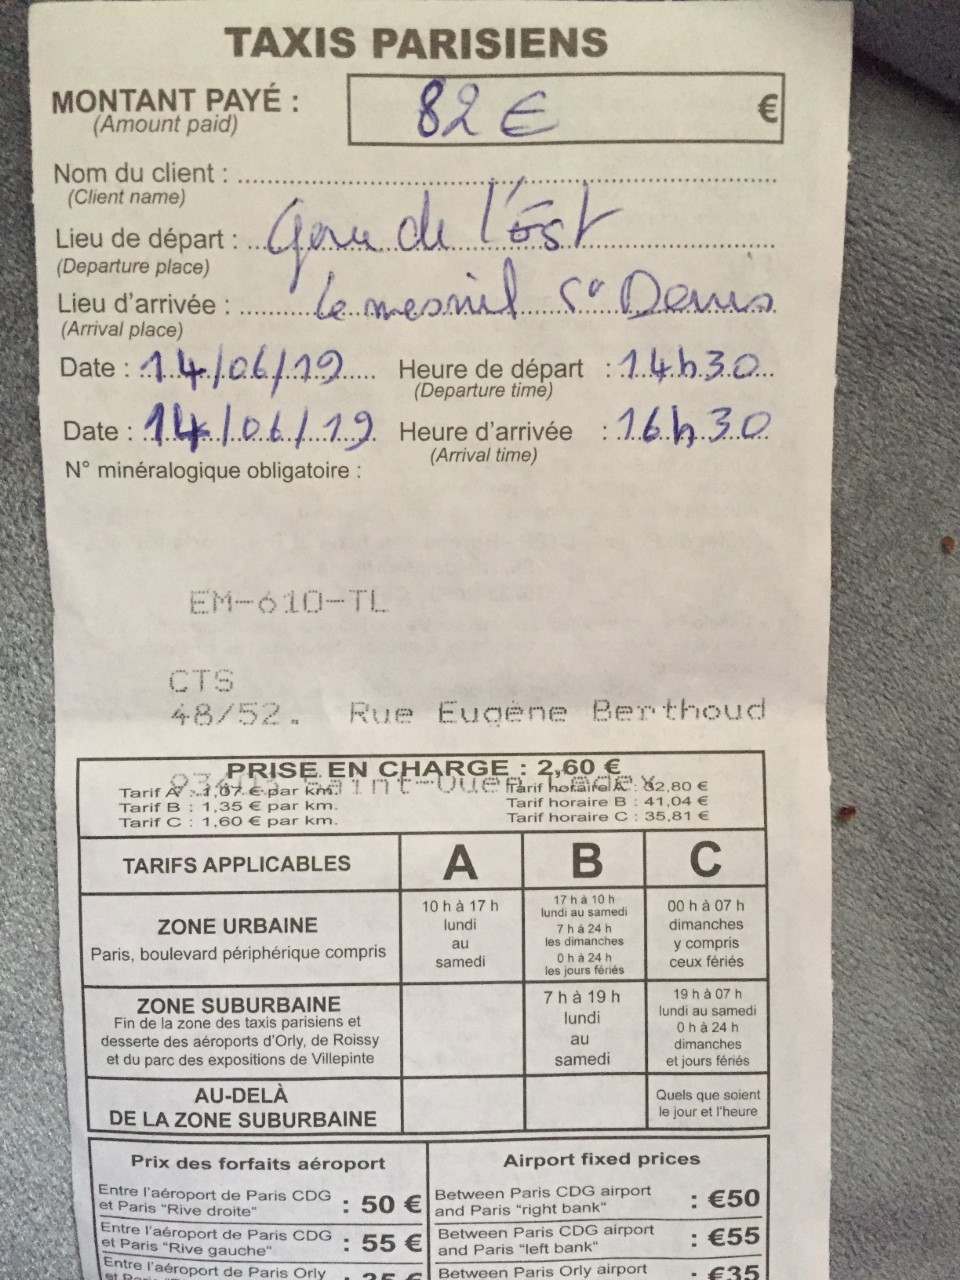 TAXIS PARISIENS
MONTANT PAYÉ : 82 € €
(Amount paid)
Nom du client :
(Client name)
Lieu de départ : Gare de l'Est
(Departure place)
Lieu d'arrivée : Le mesnil St Denis
(Arrival place)
Date : 14/06/19 Heure de départ : 14h30
(Departure time)
Date : 14/06/19 Heure d'arrivée : 16h30
(Arrival time)
N° minéralogique obligatoire :
EM-610-TL
CTS
48/52. Rue Eugène Berthoud
93403 Saint-Ouen Cedex
PRISE EN CHARGE : 2,60 €
Tarif A : 1,07 € par km. Tarif horaire A : 32,80 €
Tarif B : 1,35 € par km. Tarif horaire B : 41,04 €
Tarif C : 1,60 € par km. Tarif horaire C : 35,81 €
TARIFS APPLICABLES A B C
ZONE URBAINE
Paris, boulevard périphérique compris
10 h à 17 h
lundi
au
samedi
17 h à 10 h
lundi au samedi
7 h à 24 h
les dimanches
0 h à 24 h
les jours fériés
00 h à 07 h
dimanches
y compris
ceux fériés
ZONE SUBURBAINE
Fin de la zone des taxis parisiens et
desserte des aéroports d'Orly, de Roissy
et du parc des expositions de Villepinte
7 h à 19 h
lundi
au
samedi
19 h à 07 h
lundi au samedi
0 h à 24 h
dimanches
et jours fériés
AU-DELÀ
DE LA ZONE SUBURBAINE
Quels que soient
le jour et l'heure
Prix des forfaits aéroport
Entre l'aéroport de Paris CDG
et Paris "Rive droite" : 50 €
Entre l'aéroport de Paris CDG
et Paris "Rive gauche" : 55 €
Entre l'aéroport de Paris Orly
et Paris : 35 €
Airport fixed prices
Between Paris CDG airport
and Paris "right bank" : €50
Between Paris CDG airport
and Paris "left bank" : €55
Between Paris Orly airport
: €35